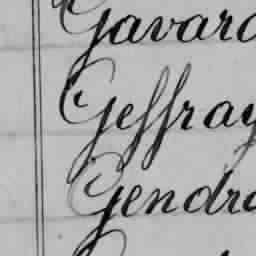 Gavard
Geffray
Gendro